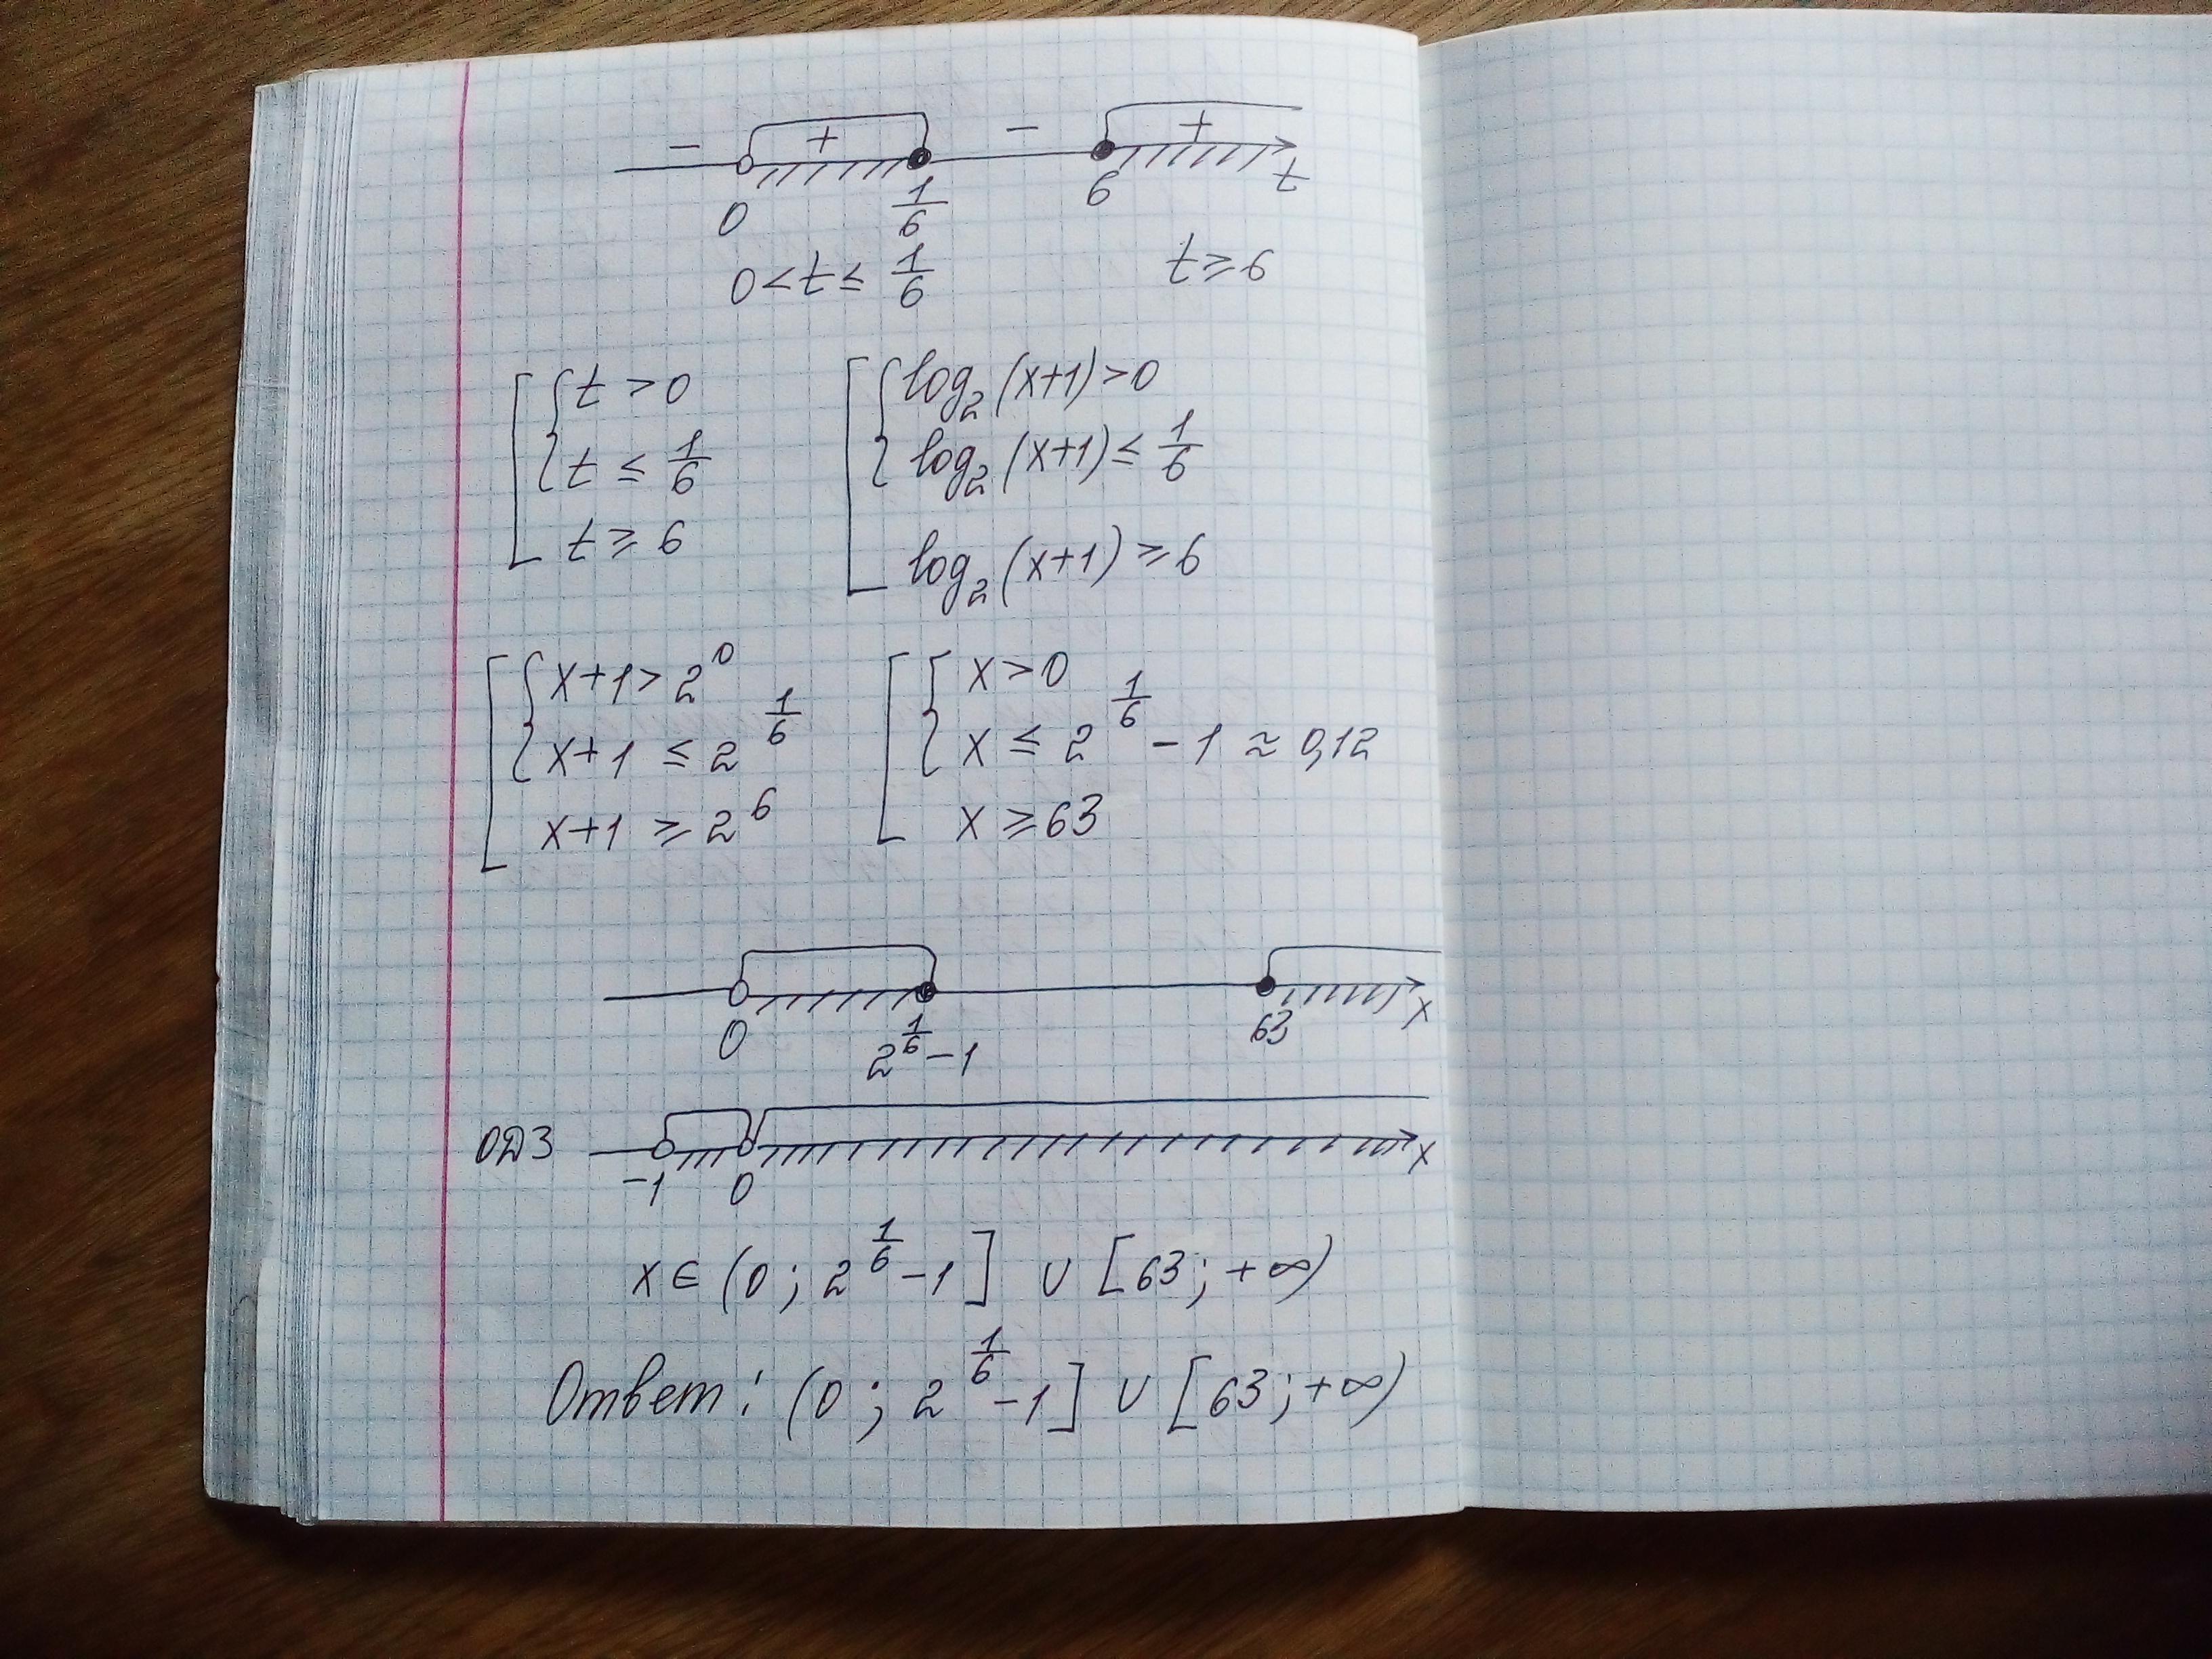 − + − +
0 1/6 6 t
0 < t ≤ 1/6 t ≥ 6
[ { t > 0 [ { log₂(x+1) > 0
t ≤ 1/6 log₂(x+1) ≤ 1/6
t ≥ 6 log₂(x+1) ≥ 6
[ { x+1 > 2^0 [ { x > 0
x+1 ≤ 2^(1/6) x ≤ 2^(1/6) − 1 ≈ 0,12
x+1 ≥ 2^6 x ≥ 63
0 2^(1/6) − 1 63 x
ОДЗ −1 0 x
x ∈ (0; 2^(1/6) − 1] ∪ [63; +∞)
Ответ: (0; 2^(1/6) − 1] ∪ [63; +∞)